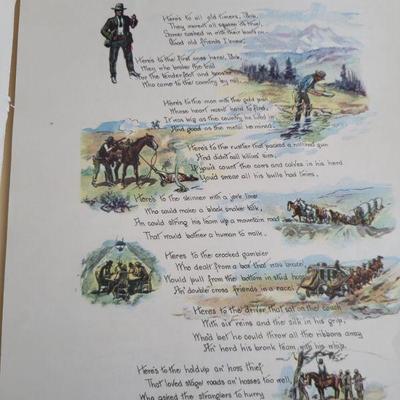 Here's to all old timers, Bob,
They weren't all square it's true,
Some cashed in with their boots on,
Good old friends I knew.
Here's to the first ones here, Bob,
They who broke the trail
For the tenderfoot and booster
Who come to the country by rail.
Here's to the man with the gold pan
Whose heart wasn't hard to find,
It was big as the country he lived in
And good as the metal he mined.
Here's to the rustler that packed a notched gun
And didn't call killed sins,
If you'd count the cows and calves in his herd
You'd swear all his bulls had twins.
Here's to the skinner with a jerk line
Who could make a black snake talk,
An could string his team up a mountain road
That would bother a human to walk.
Here's to the crooked gambler
Who dealt from a box that was brace,
Would pull from the bottom in stud hoss
An' double cross friends in a race.
Here's to the driver that sat on the coach
With six reins and the silk in his grip,
Who'd bet he could throw all the ribbons away
An' herd his bronk team with his whip.
Here's to the holdup an' hoss thief
That loved stage roads an' hosses too well,
Who asked the stranglers to hurry